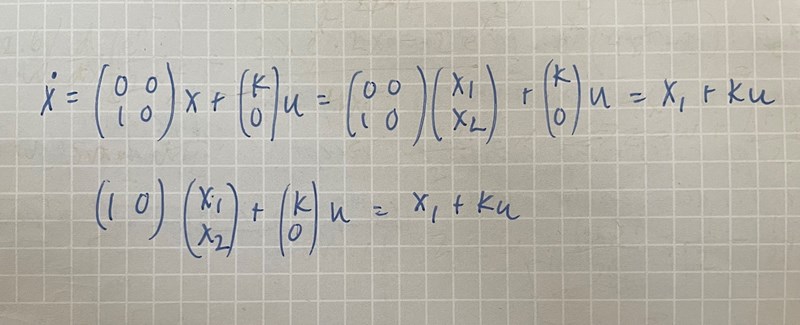 ẋ = (0 0; 1 0) x + (k; 0) u = (0 0; 1 0) (x₁; x₂) + (k; 0) u = x₁ + ku
(1 0) (x₁; x₂) + (k; 0) u = x₁ + ku